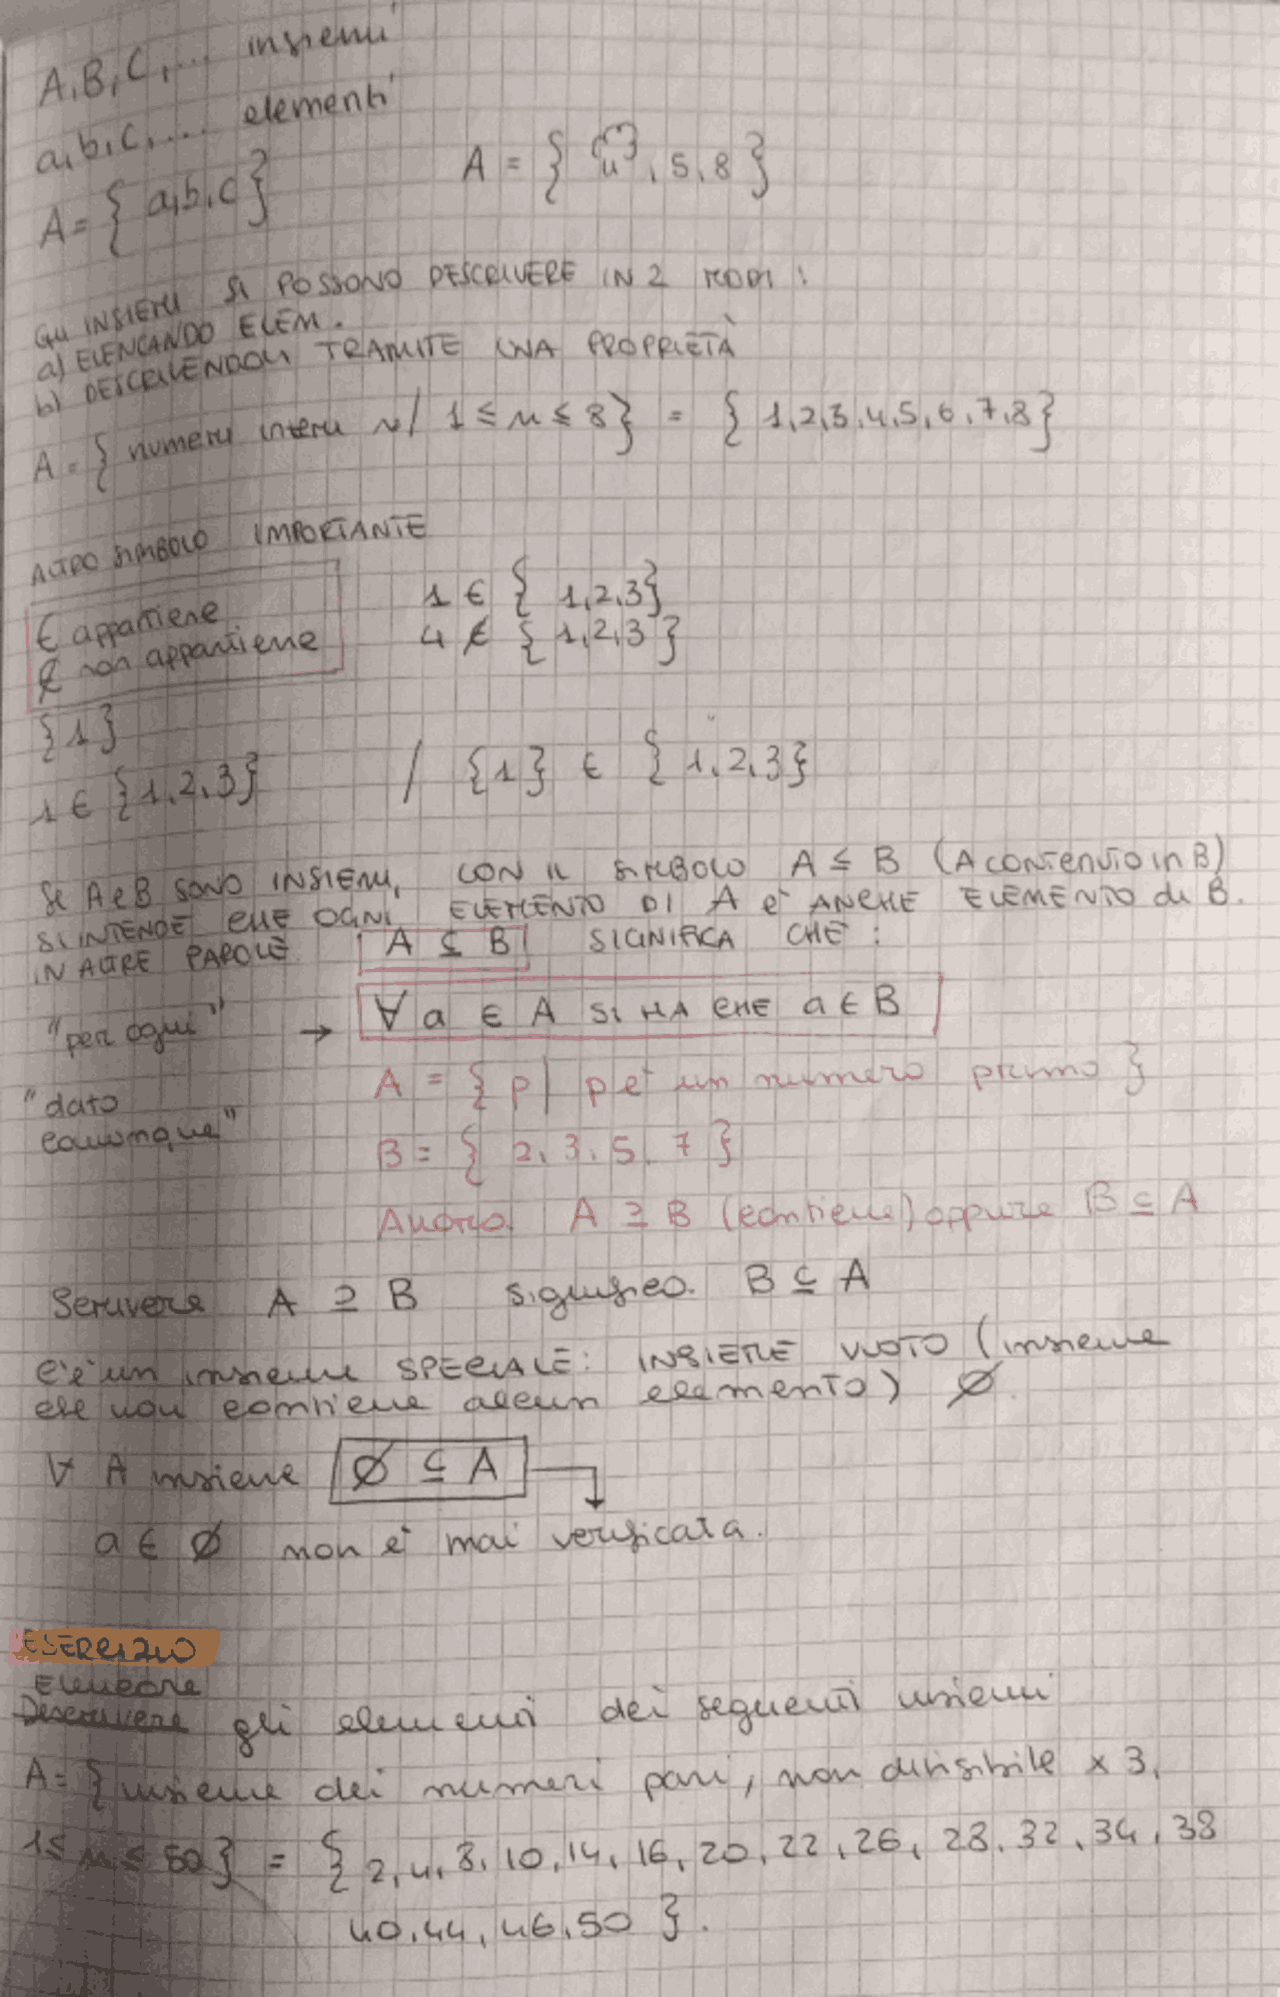 A, B, C, ... insiemi
a, b, c, ... elementi
A = { a, b, c } A = { , 5, 8 }
GLI INSIEMI SI POSSONO DESCRIVERE IN 2 MODI:
a) ELENCANDO ELEM.
b) DESCRIVENDOLI TRAMITE UNA PROPRIETÀ
A = { numeri interi n / 1 ≤ n ≤ 8 } = { 1, 2, 3, 4, 5, 6, 7, 8 }
ALTRO SIMBOLO IMPORTANTE
∈ appartiene 1 ∈ { 1, 2, 3 }
∉ non appartiene 4 ∉ { 1, 2, 3 }
{ 1 }
1 ∈ { 1, 2, 3 } / { 1 } ∈ { 1, 2, 3 }
Se A e B SONO INSIEMI, CON IL SIMBOLO A ⊆ B (A contenuto in B)
SI INTENDE CHE OGNI ELEMENTO DI A è ANCHE ELEMENTO di B.
IN ALTRE PAROLE A ⊆ B SIGNIFICA CHE:
"per ogni" → ∀ a ∈ A SI HA CHE a ∈ B
"dato comunque" A = { p | p è un numero primo }
B = { 2, 3, 5, 7 }
Allora A ⊇ B (contiene) oppure B ⊆ A
Scrivere A ⊇ B significa B ⊆ A
C'è un insieme SPECIALE: INSIEME VUOTO (insieme
che non contiene alcun elemento) ∅.
∀ A insieme ∅ ⊆ A
a ∈ ∅ non è mai verificata.
ESERCIZIO
Elencare
Descrivere gli elementi dei seguenti insiemi
A = { insieme dei numeri pari, non divisibile x 3,
1 ≤ n ≤ 50 } = { 2, 4, 8, 10, 14, 16, 20, 22, 26, 28, 32, 34, 38
40, 44, 46, 50 }.